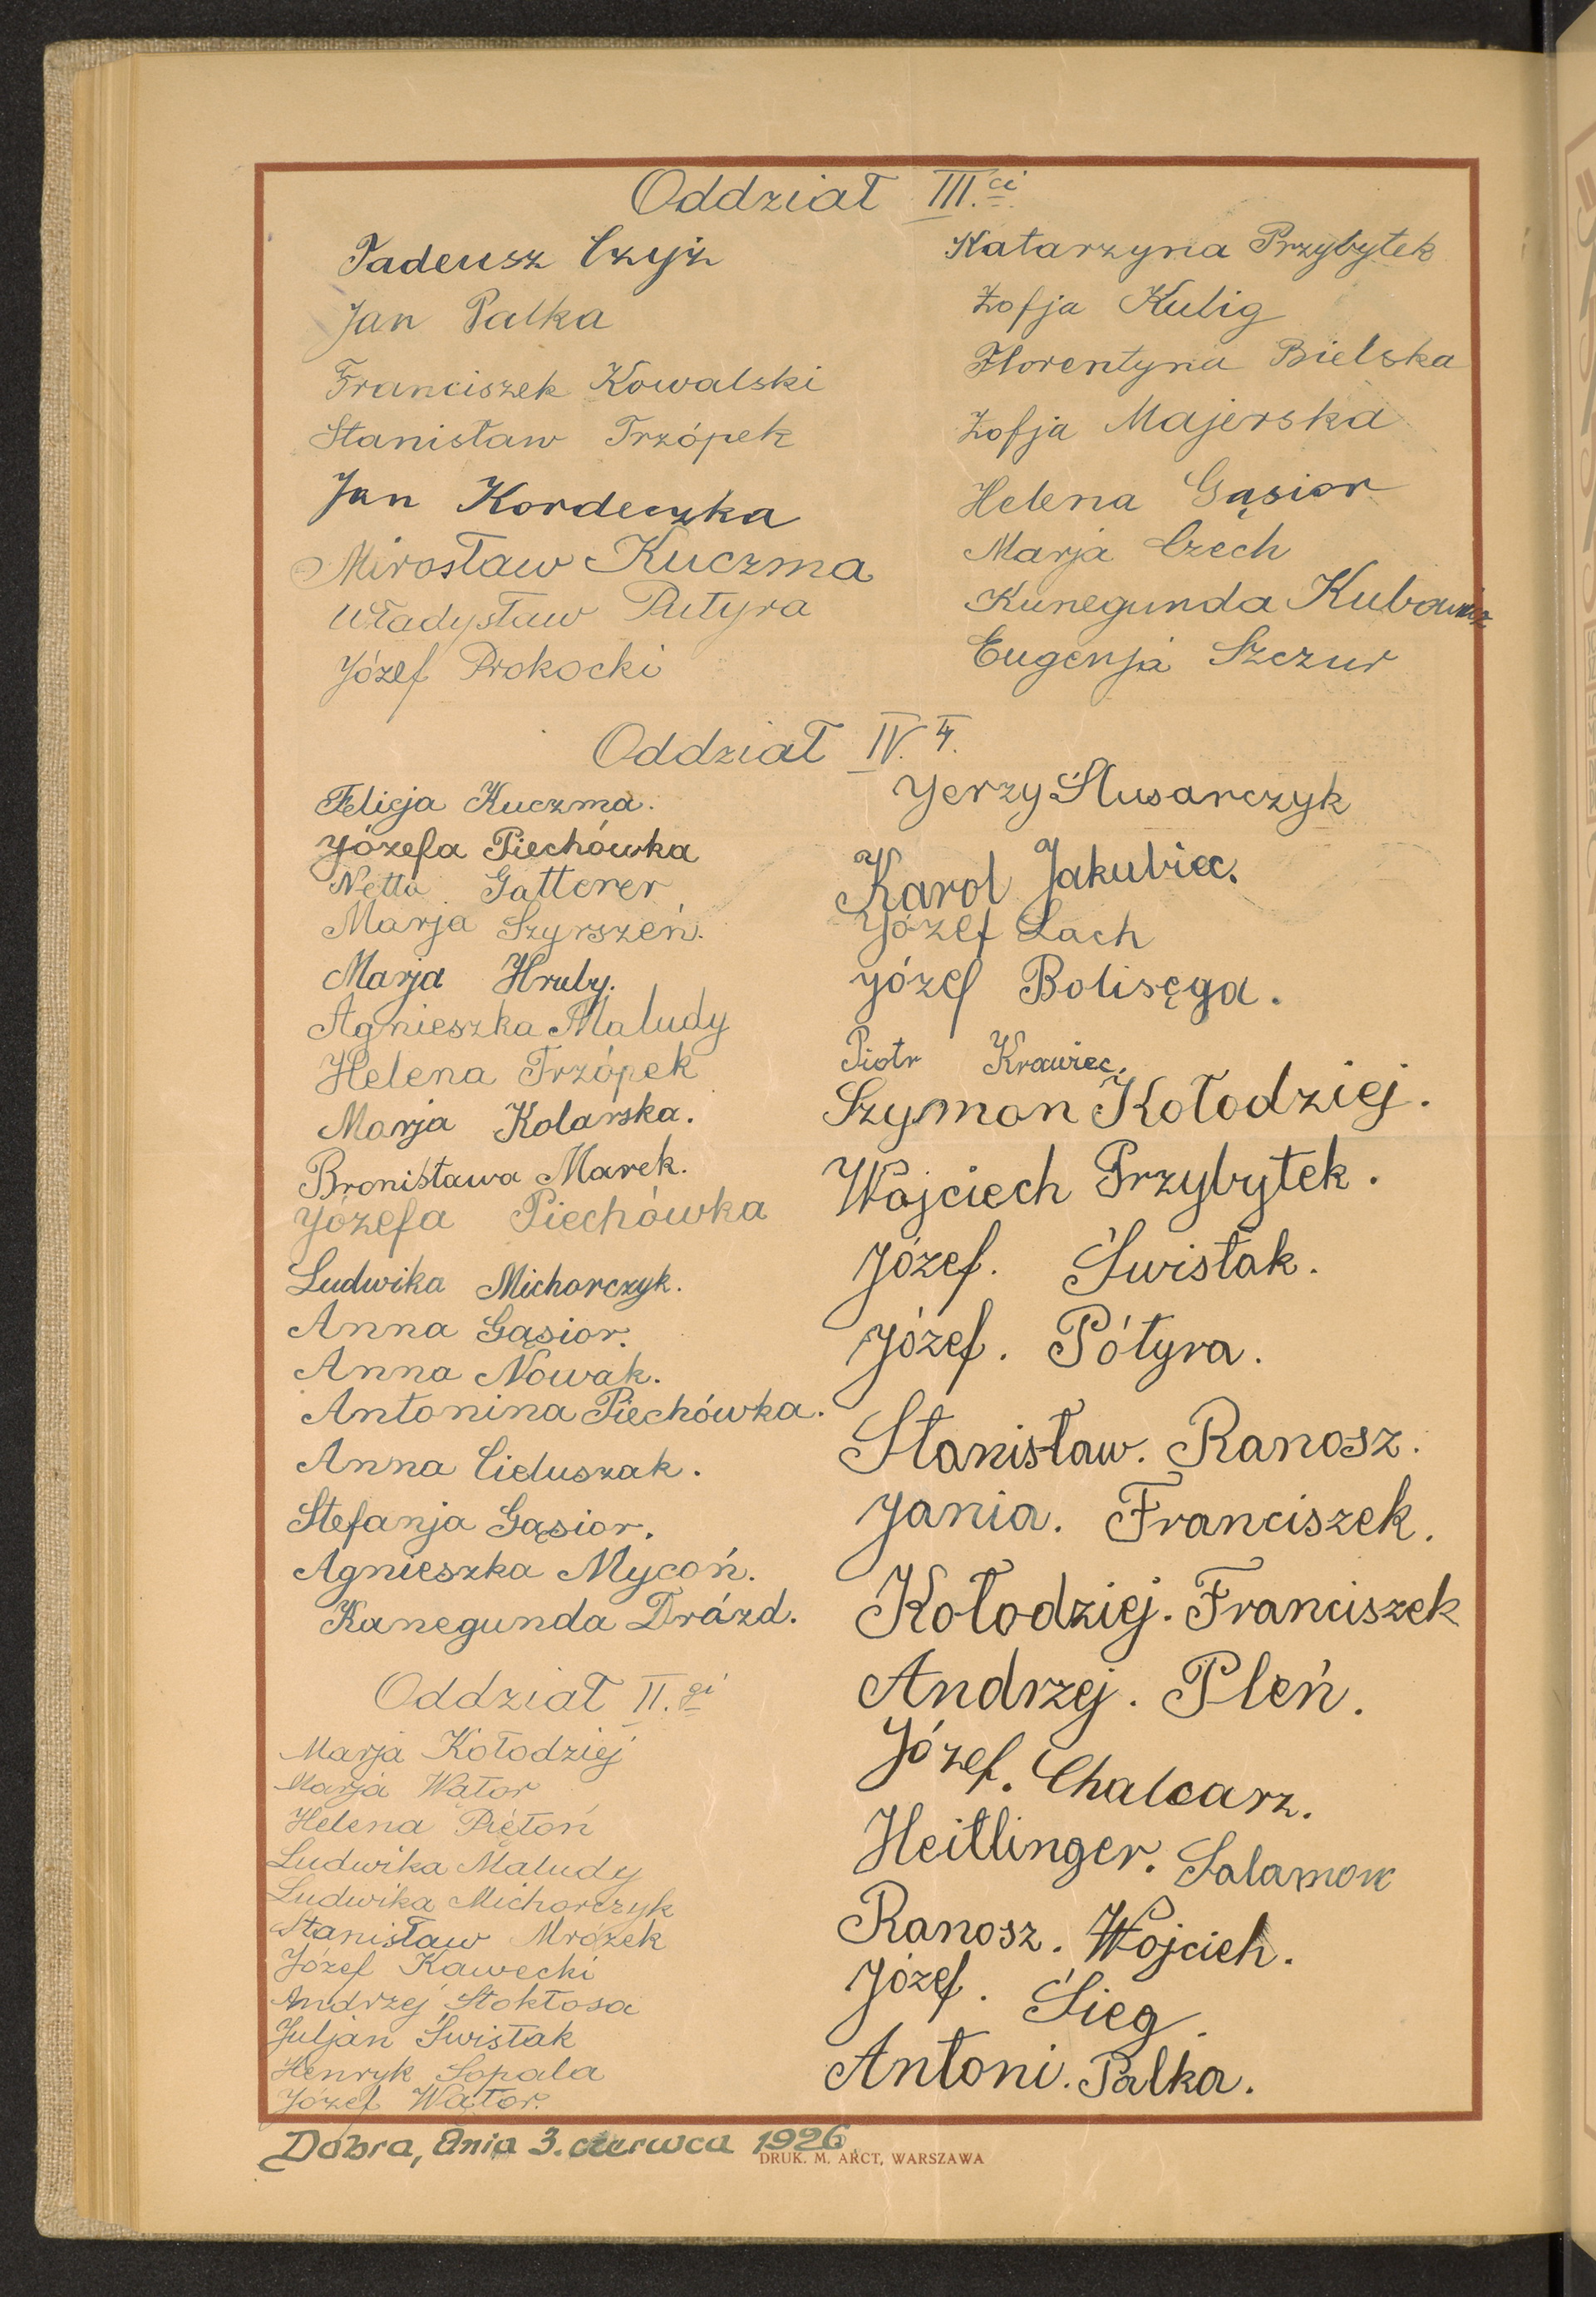 Oddział III.ci
Tadeusz Czyż
Jan Palka
Franciszek Kowalski
Stanisław Trzópek
Jan Kordeczka
Mirosław Kuczma
Władysław Putyra
Józef Prokocki
Katarzyna Przybyłek
Zofja Kulig
Florentyna Bielska
Zofja Majerska
Helena Gąsior
Marja Czech
Kunegunda Kubowicz
Eugenja Szczur
Oddział IV.ty.
Felicja Kuczma.
Józefa Piechówka
Netta Gatterer
Marja Szyrszeń.
Marja Hruby.
Agnieszka Maludy
Helena Trzópek
Marja Kolarska.
Bronisława Marek.
Józefa Piechówka
Ludwika Michorczyk.
Anna Gąsior.
Anna Nowak.
Antonina Piechówka.
Anna Cieluszak.
Stefanja Gąsior.
Agnieszka Mycoń.
Kanegunda Drózd.
Jerzy Ślusarczyk
Karol Jakubiec.
Józef Lach
Józef Bolisęga.
Piotr Krawiec.
Szymon Kołodziej.
Wojciech Przybyłek.
Józef. Świstak.
Józef. Pótyra.
Stanisław. Ranosz.
Jania. Franciszek.
Kołodziej. Franciszek
Andrzej. Pleń.
Józef. Chalcarz.
Heitlinger. Salamon
Ranosz. Wojcieh.
Józef. Śieg.
Antoni. Palka.
Oddział II.gi
Marja Kołodziej
Marja Wątor
Helena Piętoń
Ludwika Maludy
Ludwika Michorczyk
Stanisław Mrózek
Józef Kawecki
Andrzej Stokłosa
Juljan Świstak
Henryk Sopala
Józef Wątor.
Dobra, dnia 3. czerwca 1926.
DRUK. M. ARCT, WARSZAWA